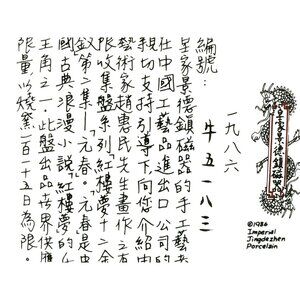 編號：
一九八六
牛五一八三
皇家景德鎮磁器的手工藝者
在中國工藝品進出口公司的
親切支持引導下，向您介紹由
藝術家趙惠民先生畫作之有
限收集盤系列「紅樓夢」十二金
釵」第二集—「元春」。「元春」是中
國古典浪漫小說「紅樓夢」的
王角之一。此盤出品世界供應
限量以燒窯一百一十五日為限。
皇家景德鎮磁
©1986
Imperial
Jingdezhen
Porcelain